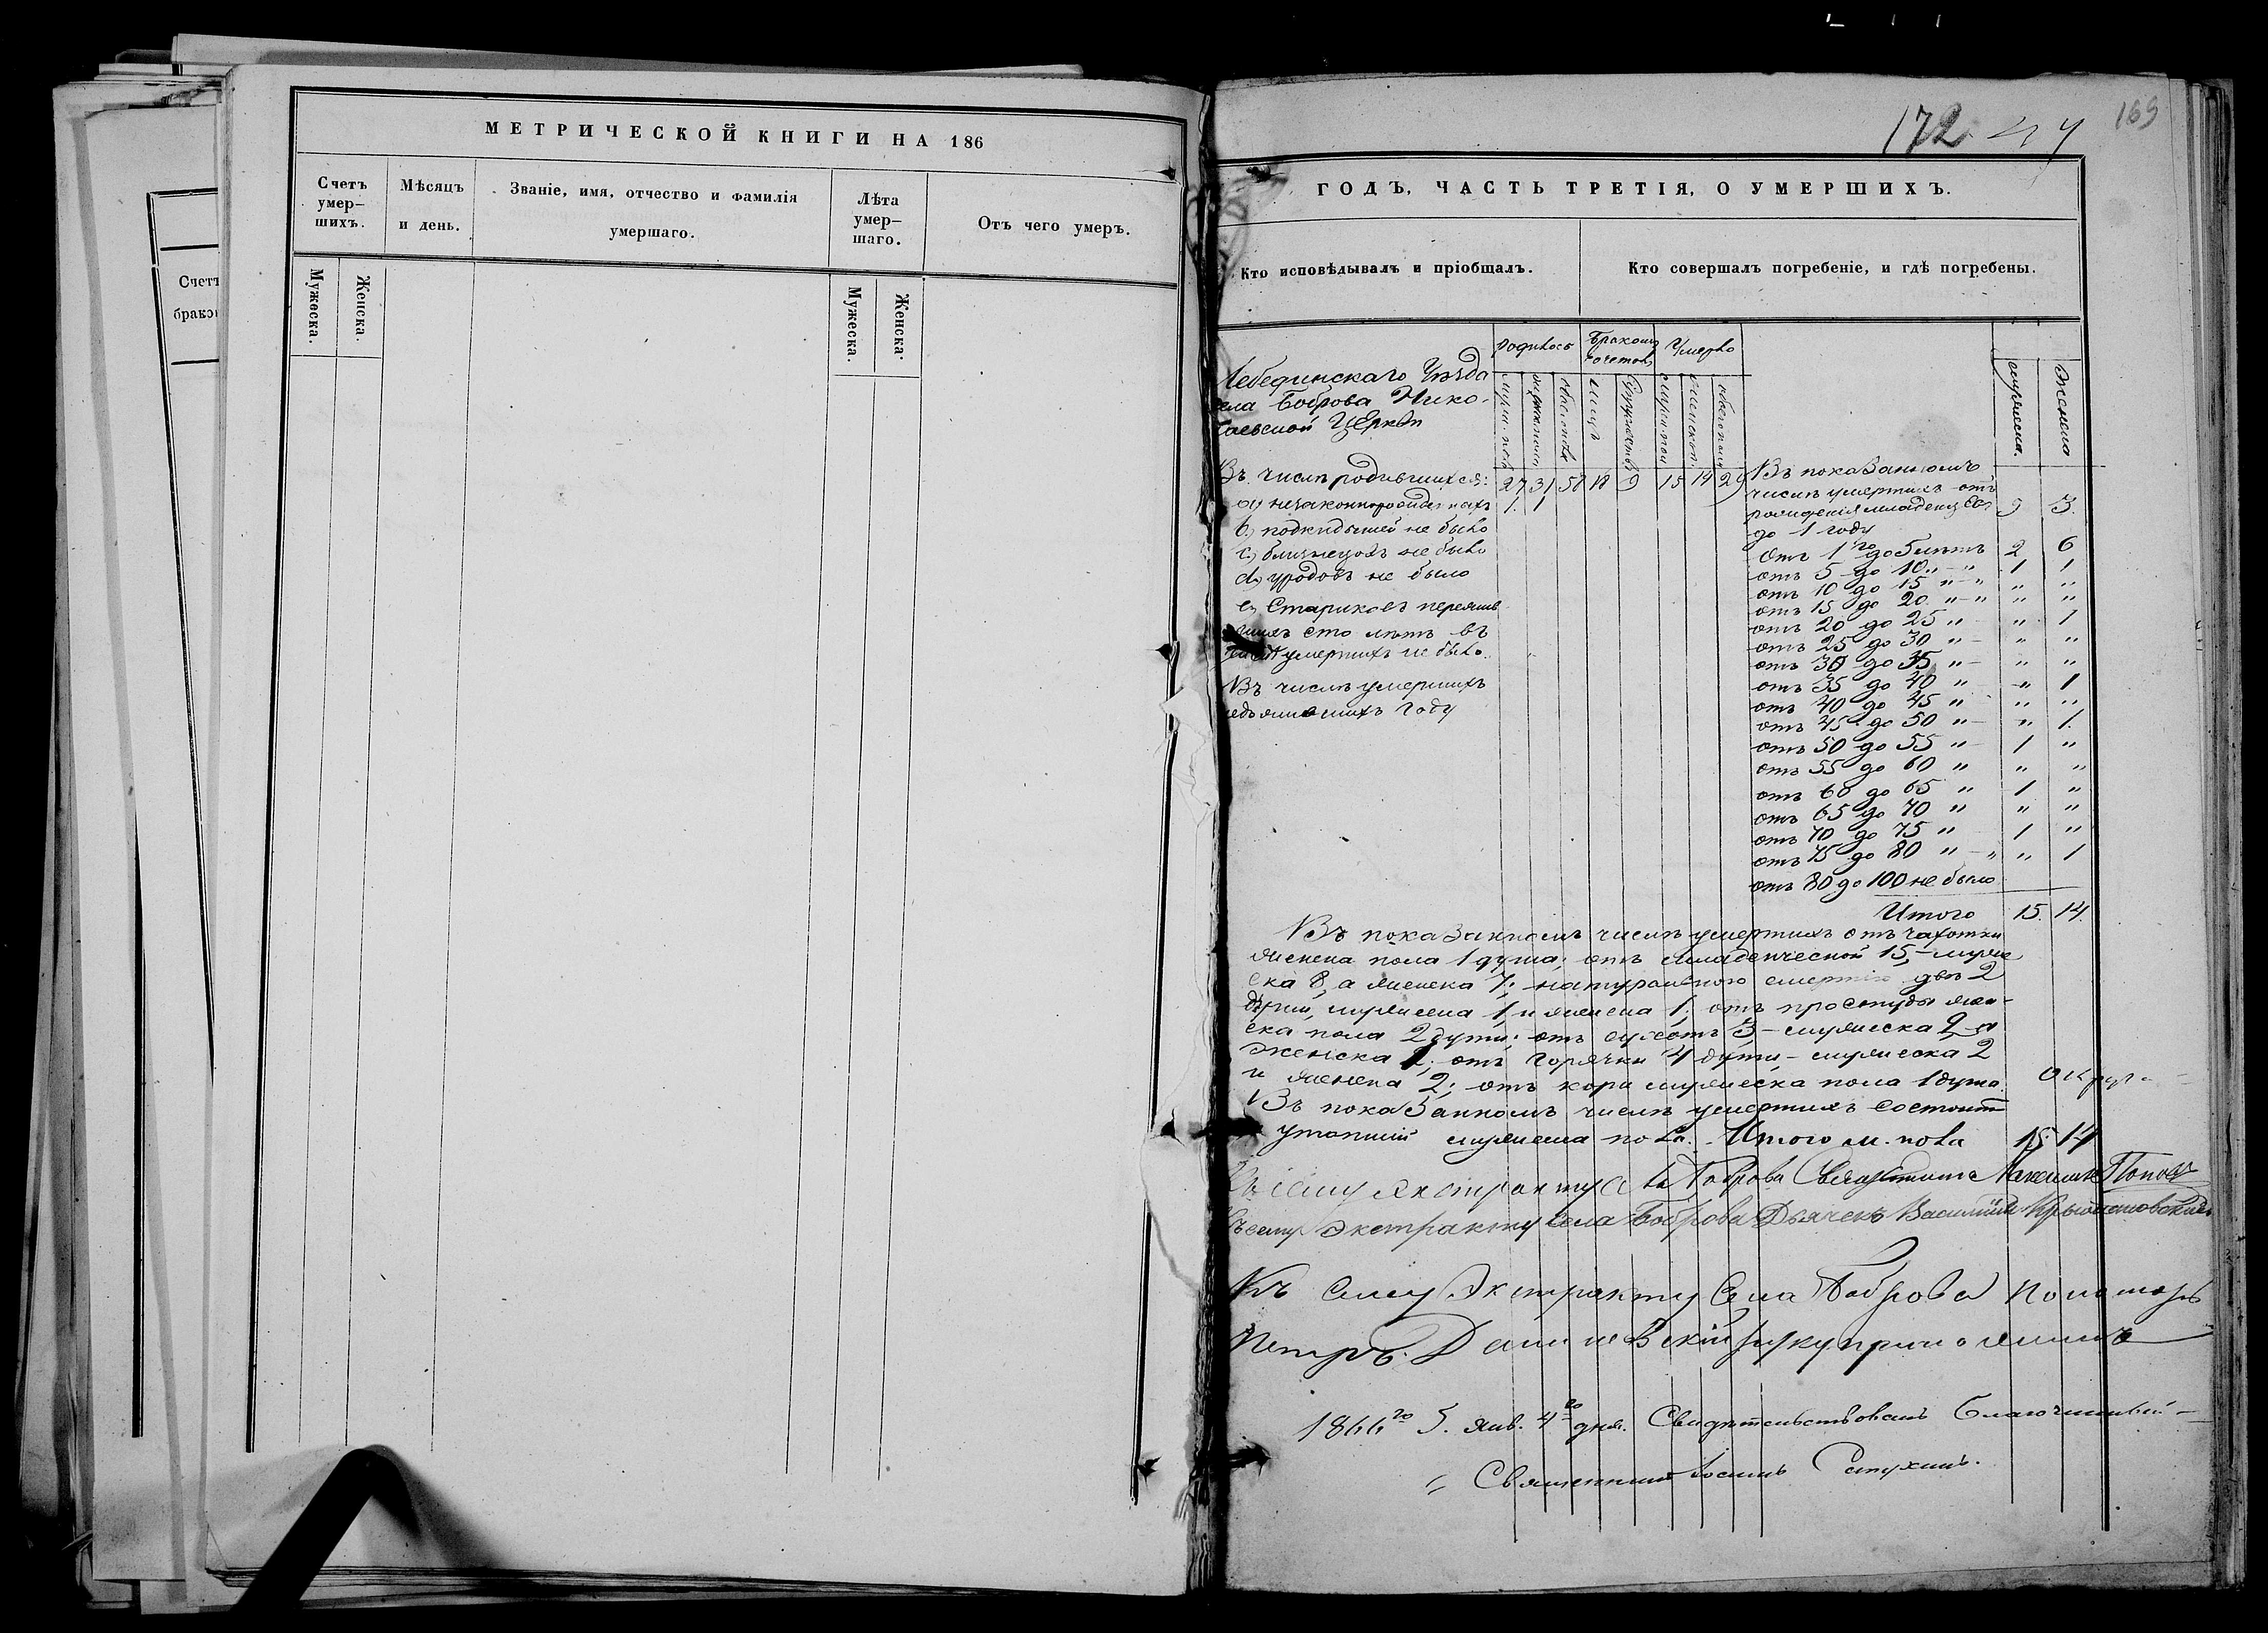 МЕТРИЧЕСКОЙ КНИГИ НА 186
Счетъ умер-шихъ.
Мѣсяцъ и день.
Званіе, имя, отчество и фамилія умершаго.
Лѣта умер-шаго.
Отъ чего умеръ.
Мужеска.
Женска.
Мужеска.
Женска.
Счетъ
брако
172
169
ГОДЪ, ЧАСТЬ ТРЕТІЯ, О УМЕРШИХЪ.
Кто исповѣдывалъ и пріобщалъ.
Кто совершалъ погребеніе, и гдѣ погребены.
Лебединскаго Уѣзда
села Боброва Нико-
лаевской Церкви
родилось
Умерло
женска
Въ числѣ родившихся:
27 31 58 9 15 14 29
а, незаконнорожденныхъ 1. 1
b, подкидышей не было
c, близнецовъ не было
d, уродовъ не было
е, Стариковъ пережившихъ сто лѣтъ въ
числѣ умершихъ не было.
Въ числѣ умершихъ
году
Въ показанномъ
числѣ умершихъ отъ
рожденія младенцевъ 9 3.
до 1 году
Отъ 1го до 5 лѣтъ 2 6
отъ 5 до 10 „ - „ 1 1
отъ 10 до 15 „ - „ „ „
отъ 15 до 20 „ - „ „ „
отъ 20 до 25 „ - „ 1
отъ 25 до 30 „ - „ „
отъ 30 до 35 „ - „ „
отъ 35 до 40 „ - „ 1
отъ 40 до 45 „ „ „
отъ 45 до 50 „ - „ 1.
отъ 50 до 55 „ - 1 „
отъ 55 до 60 „ „ „
отъ 60 до 65 „ 1 „
отъ 65 до 70 „ „ „
отъ 70 до 75 „ 1 „
отъ 75 до 80 „ - „ „ 1
отъ 80 до 100 не было
Итого 15. 14.
Въ показанномъ числѣ умершихъ отъ чахотки
женска пола 1 душа; отъ младенческой 15, - муже
ска 8, а женска 7; натуральною смертію двѣ 2
души, мужеска 1, и женска 1; отъ простуды жен-
ска пола 2 души; отъ сухотъ 3 - мужеска 2 и
Женска 1; отъ горячки 4 души - мужеска 2
и женска 2; отъ кори мужеска пола 1 душа.
Въ показанномъ числѣ умершихъ состоитъ
утопшій мужеска пола. Итого м. пола 15. 14
Къ сему экстракту села Боброва Священникъ Поповъ
Къ сему экстракту села Боброва Дьячекъ Василій
Къ сему Экстракту Села Боброва Пономарь
Петръ Данилевскій руку приложилъ
1866го Г. Янв. 4го дня. Свидѣтельствовалъ Благочинный
Священникъ